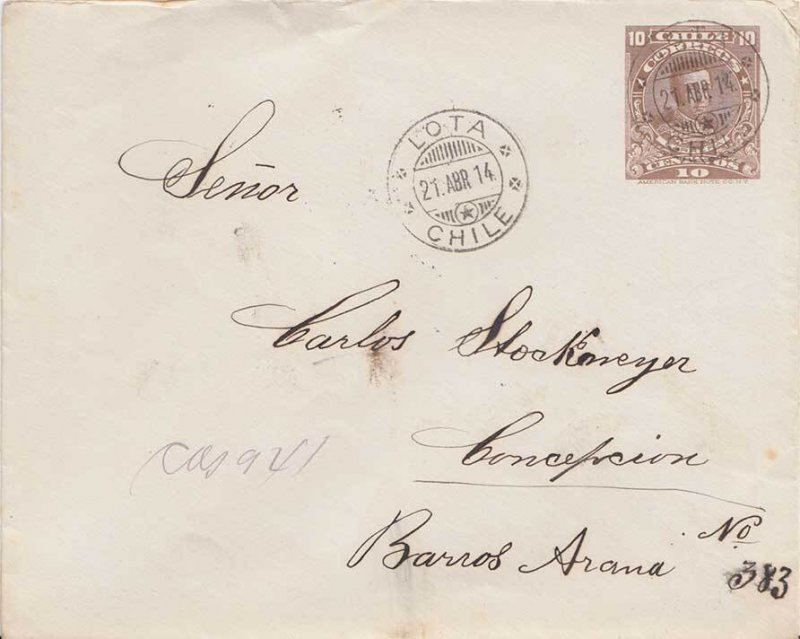 10 CHILE 10
CORREOS
21.ABR 14
CHILE
CENTAVOS
10
AMERICAN BANK NOTE CO. N.Y.
LOTA
21.ABR 14
CHILE
Señor
Carlos Stockmeyer
Concepcion
Barros Arana No
383